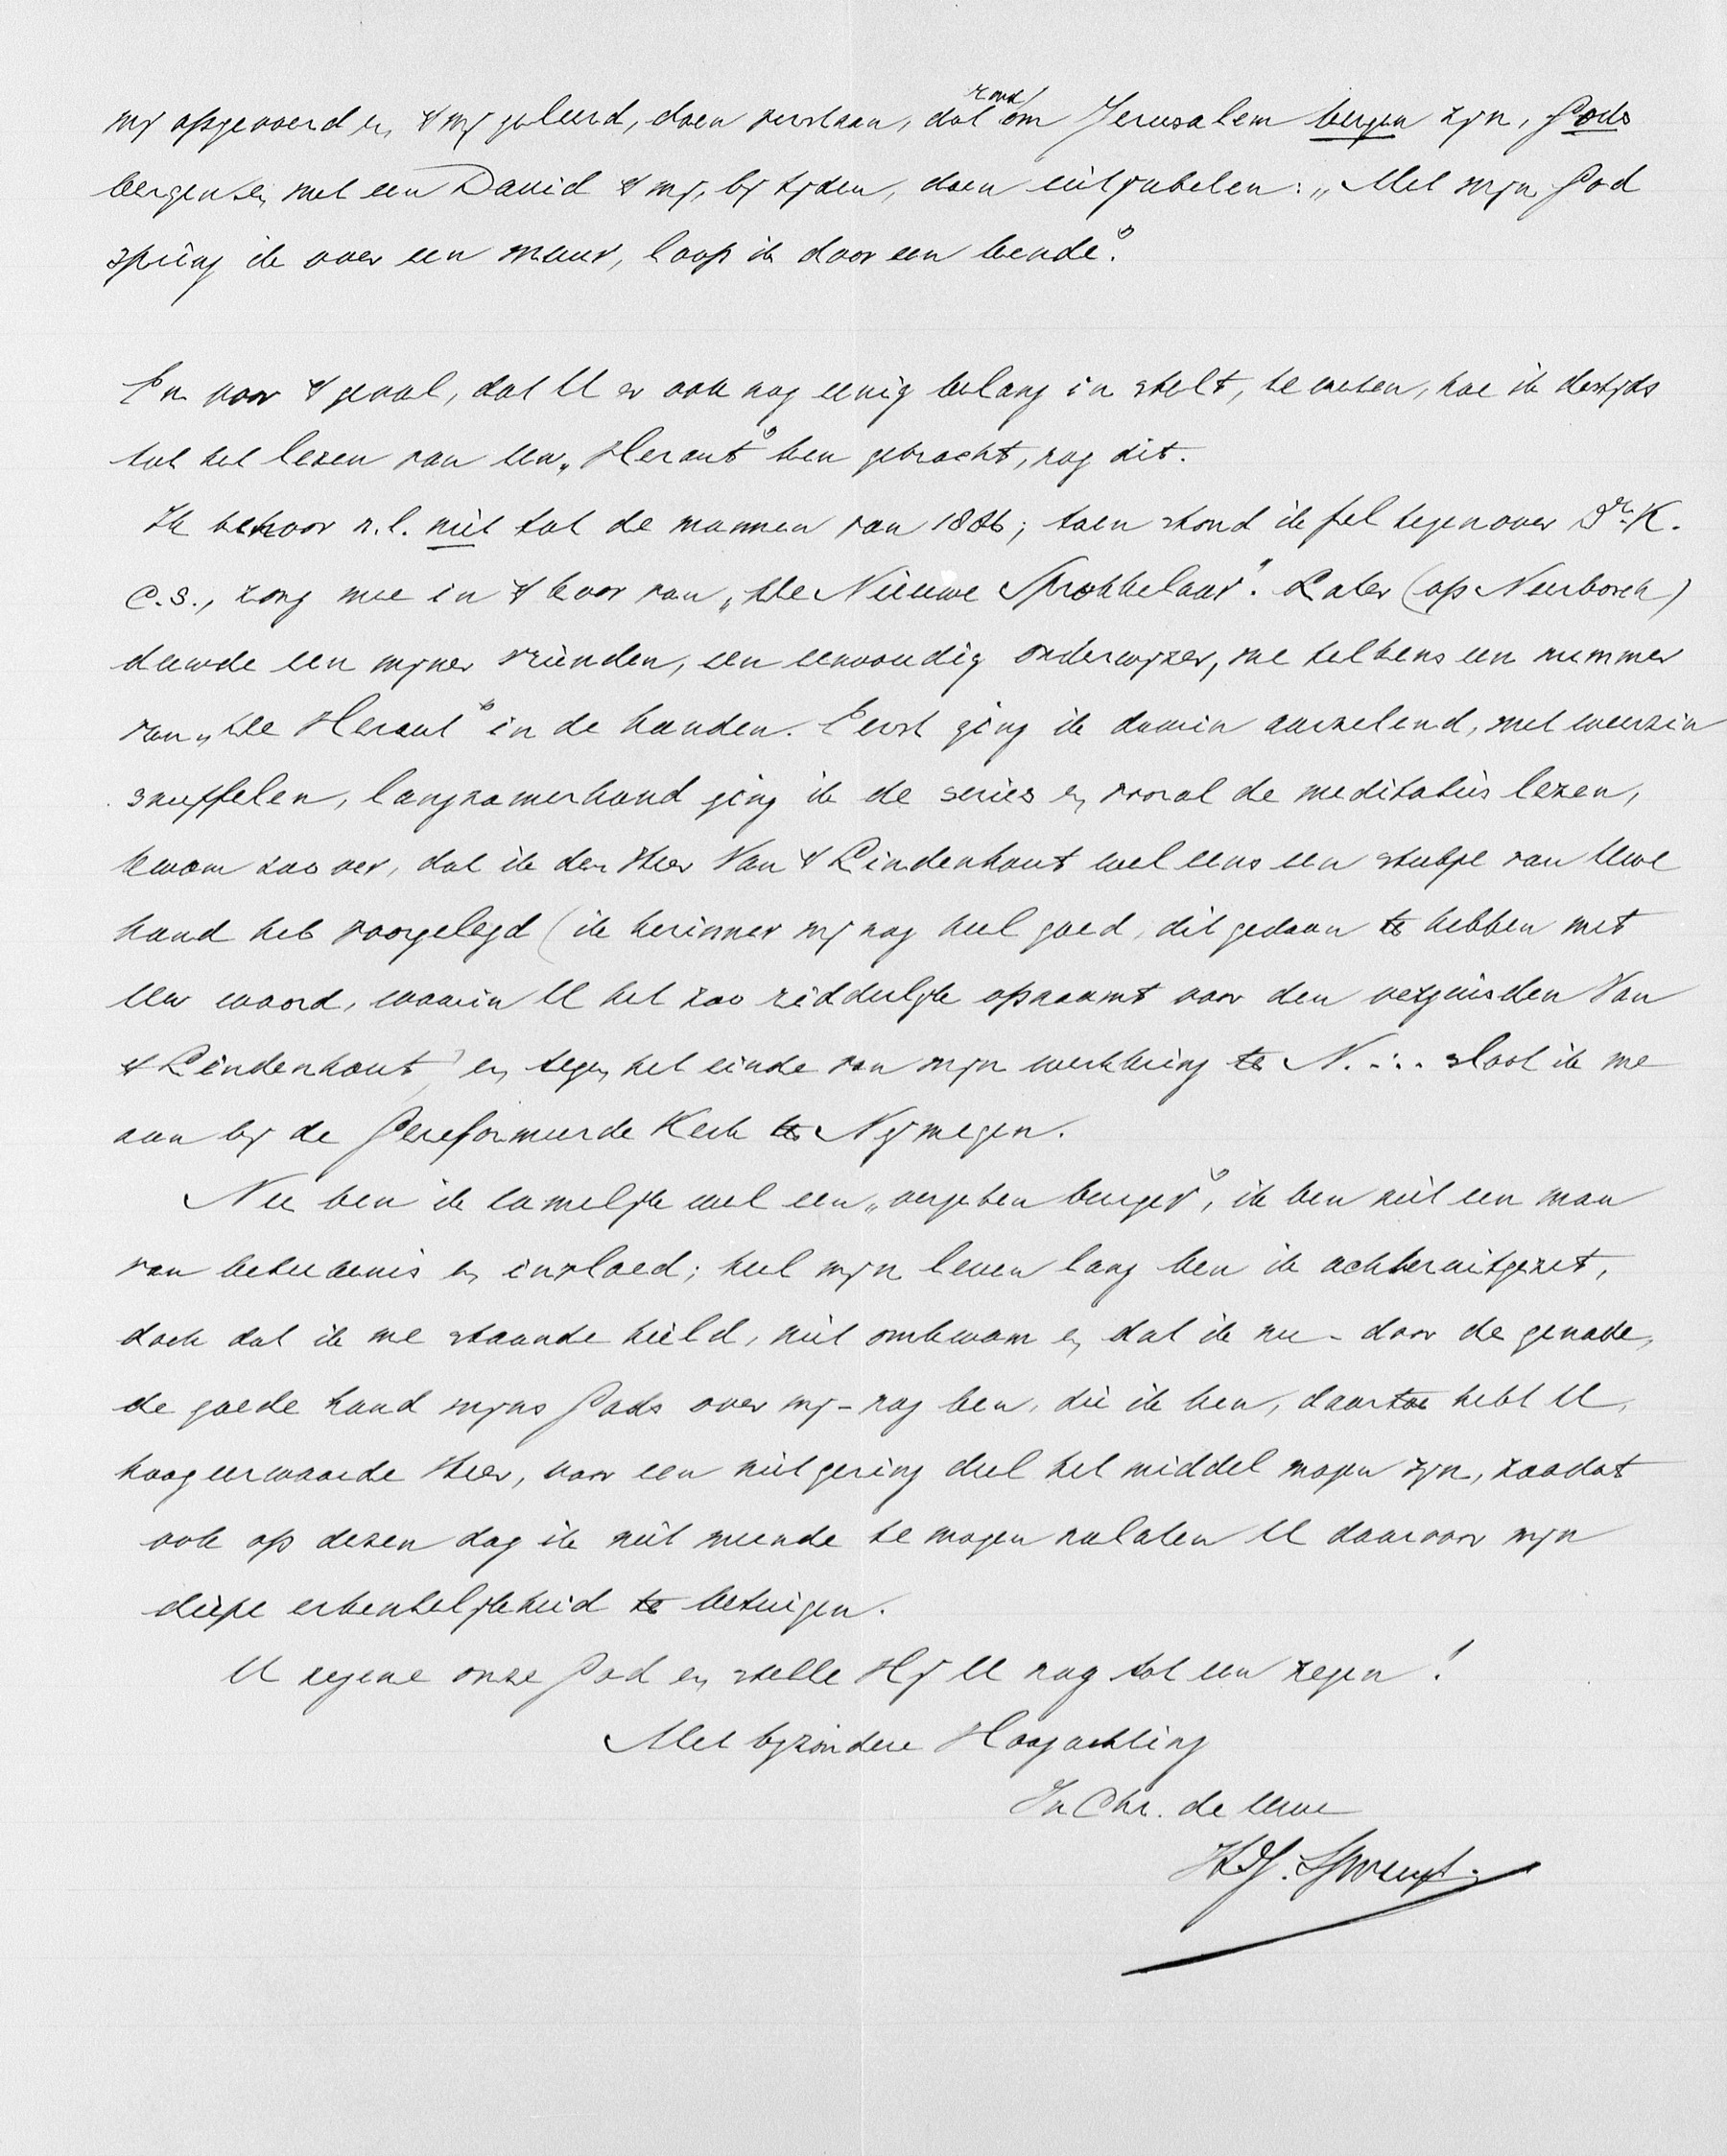 mij opgevoerd en 't mij geleerd, doen verstaan, dat rond om Jerusalem bergen zijn, Gods
bergen en met een David 't mij, bij tijden, doen uitjubelen: „Met mijn God
spring ik over een muur, loop ik door een bende".
En voor 't geval, dat U er ook nog eenig belang in stelt, te weten, hoe ik destijds
tot het lezen van een „Heraut" ben gebracht, nog dit.
Ik behoor n.l. niet tot de mannen van 1886; toen stond ik fel tegenover Dr. K.
c.s., zong mee in 't koor van „De Nieuwe Sprokkelaar". Later (op Neerbosch)
duwde een mijner vrienden, een eenvoudig onderwijzer, me telkens een nummer
van „De Heraut" in de handen. Eerst ging ik daarin aarzelend, met weerzin
snuffelen, langzamerhand ging ik de series en vooral de meditaties lezen,
kwam zoo ver, dat ik den Heer Van 't Lindenhout wel eens een stukje van Uwe
hand heb voorgelegd (ik herinner mij nog heel goed, dit gedaan te hebben met
Uw woord, waarin U het zoo ridderlijk opnaamt voor den verguisden Van
't Lindenhout) en tegen het einde van mijn werkkring te N. ... sloot ik me
aan bij de Gereformeerde Kerk te Nijmegen.
Nu ben ik tamelijk wel een „vergeten burger", ik ben niet een man
van beteekenis en invloed; heel mijn leven lang ben ik achteruitgezet,
doch dat ik me staande hield, niet omkwam en dat ik nu - door de genade,
de goede hand mijns Gods over mij - nog ben, die ik ben, daartoe hebt U,
hoogeerwaarde Heer, voor een niet gering deel het middel mogen zijn, zoodat
ook op dezen dag ik niet meende te mogen nalaten U daarvoor mijn
diepe erkentelijkheid te betuigen.
U zegene onze God en stelle Hij U nog tot een zegen!
Met bijzondere Hoogachting
In Chr. de Uwe